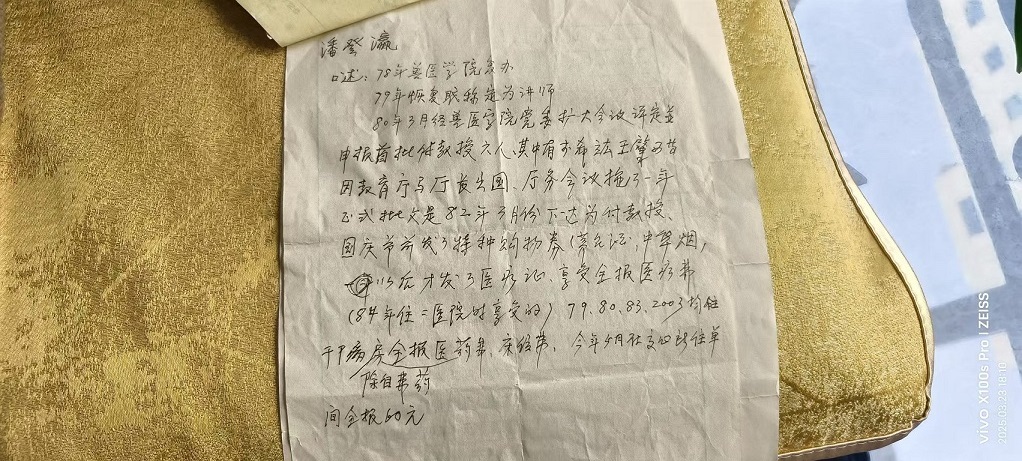 潘登瀛
口述：78年兽医学院复办
79年恢复职称定为讲师
80年3月经兽医学院党委扩大会议评定并
申报首批付教授六人,其中有
因教育厅马厅长出国、厅务会议拖了一年
正式批文是82年3月份下达为付教授、
国庆节前发了特种购物券(中华烟,
以后才发了医疗证、享受全报医疗费
(84年住二医院时享受的) 79.80.83.2003均住
干部病房全报医药费、床铺费、今年4月住单
除自费药
间全报60元
vivo X100s Pro | ZEISS
2025.03.23 18:10